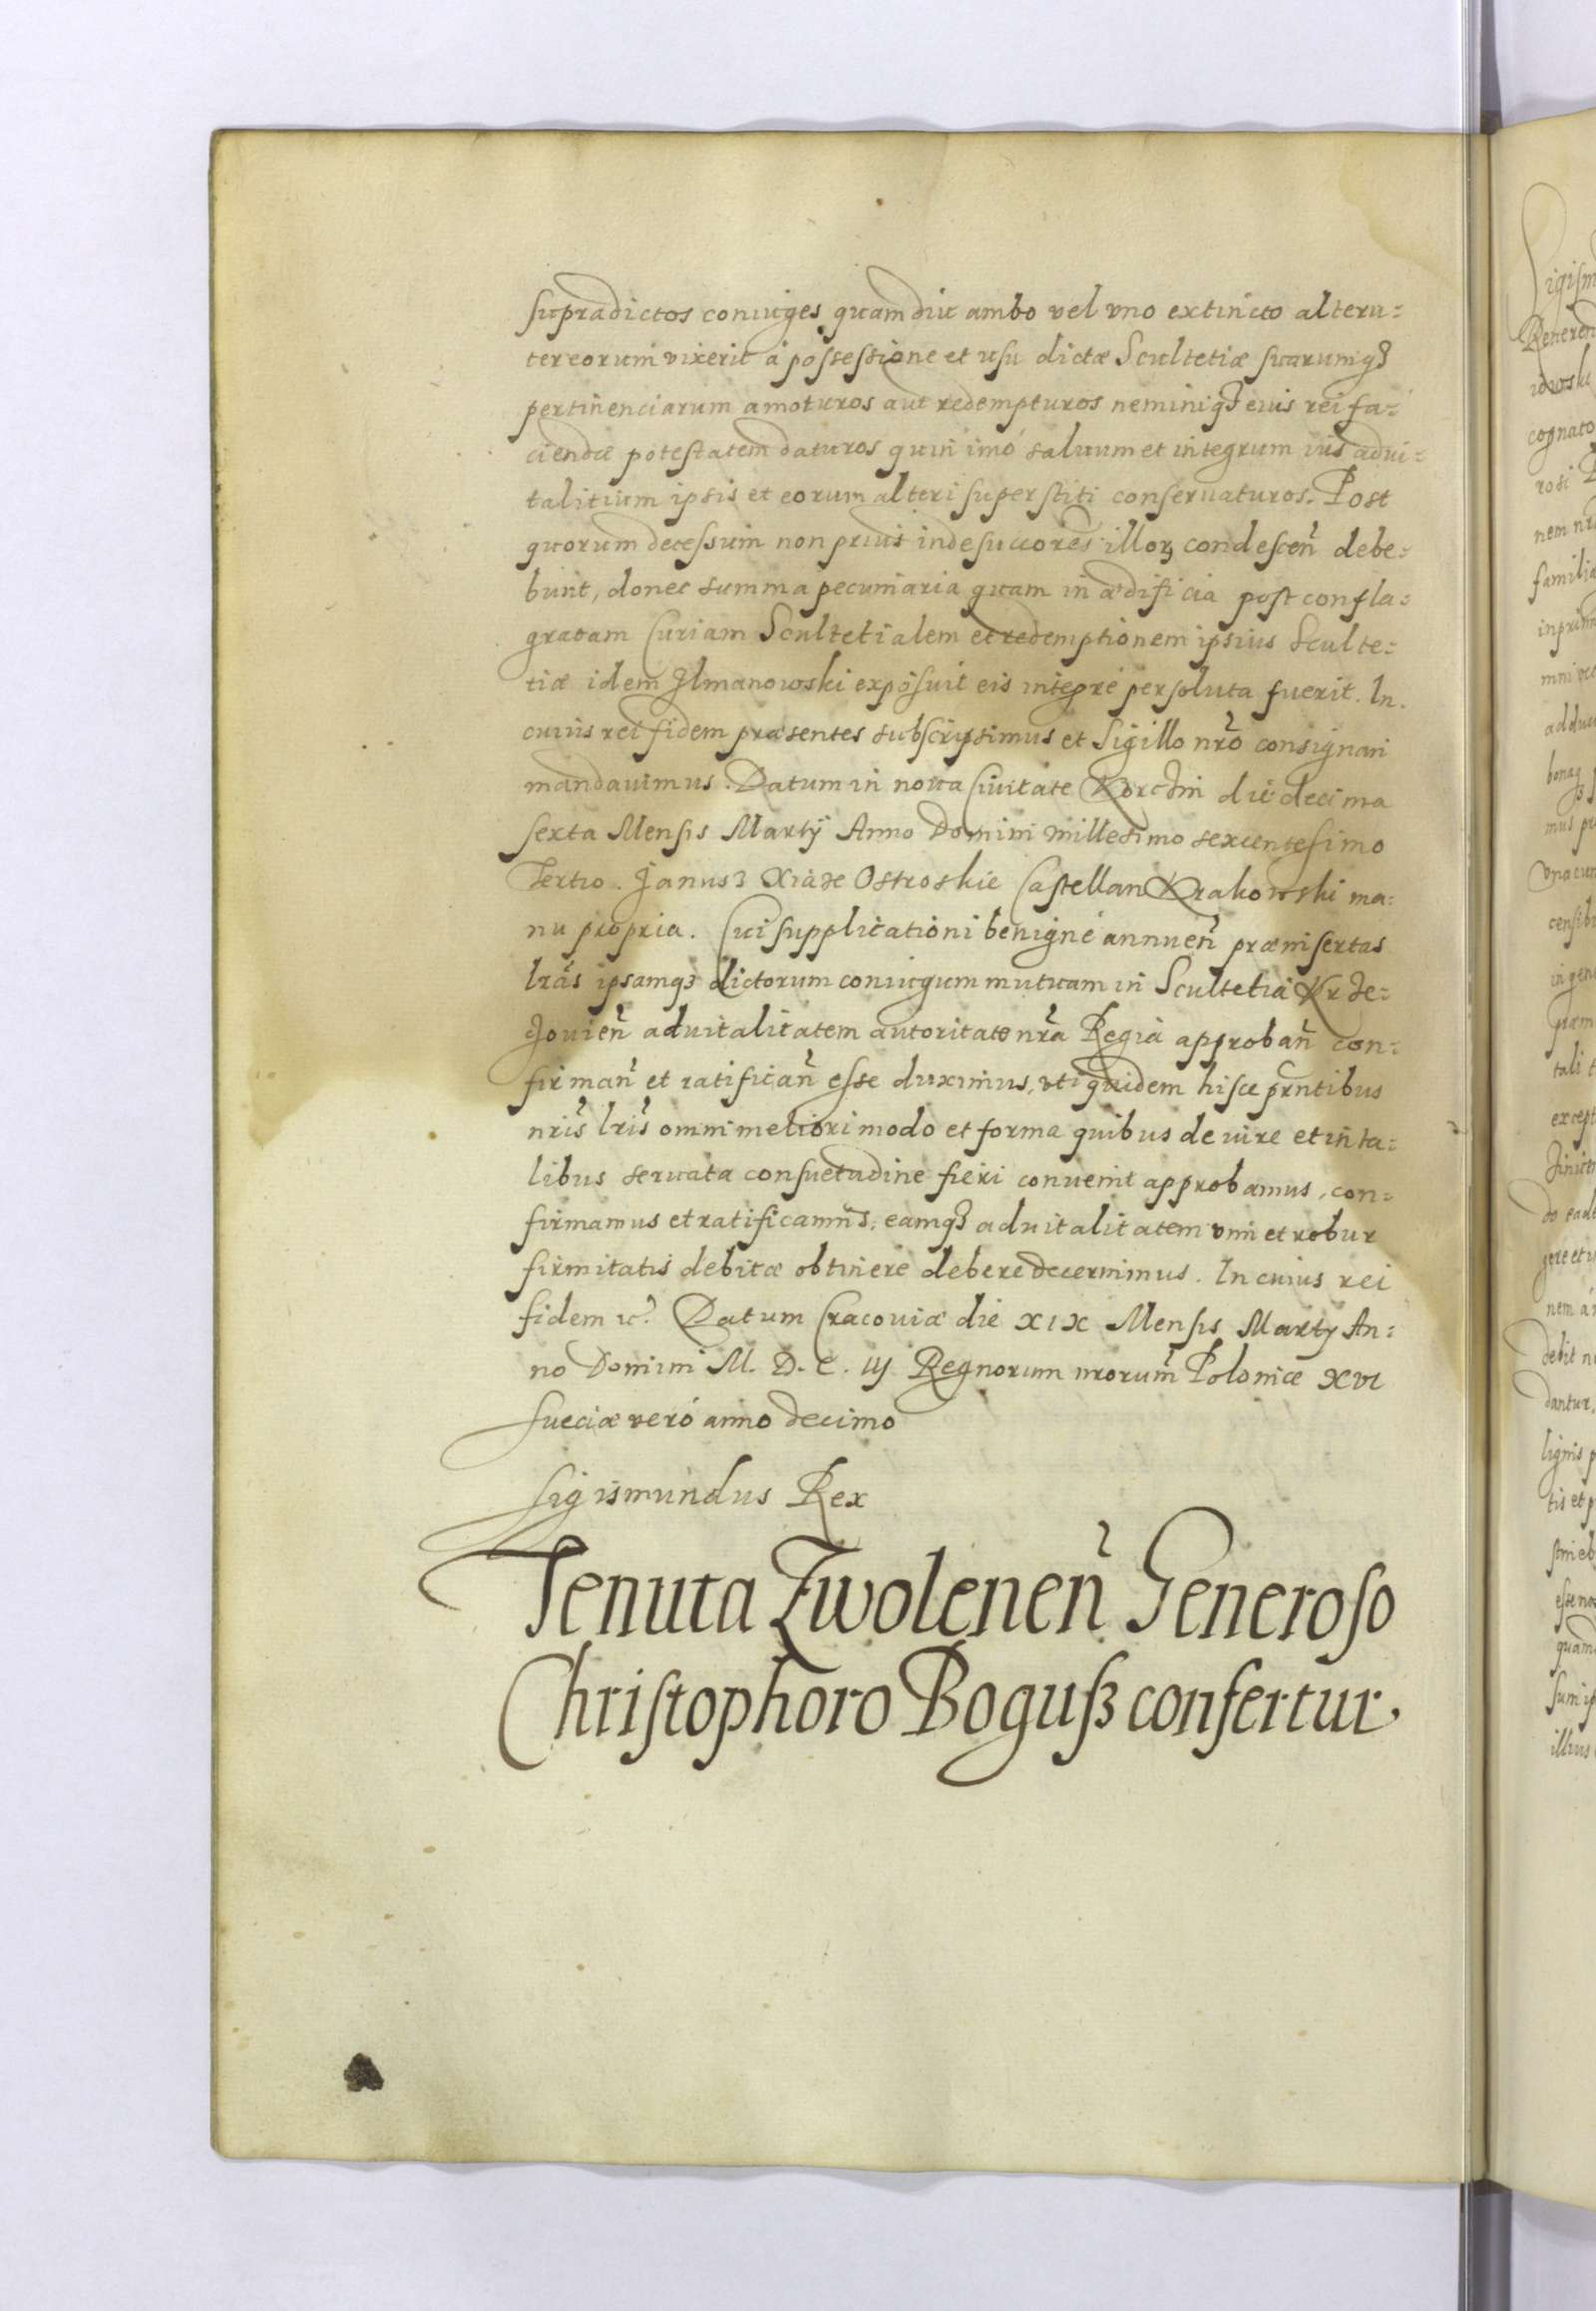 supradictos coniuges quamdiu ambo vel vno extincto alteru=
ter eorum vixerit a possessione et usu dictæ Scultetiæ suarumq3
pertinenciarum amoturos aut redempturos neminiq3 euis rei fa=
ciendæ potestatem daturos quin imó saluum et integrum ius advi=
talitium ipsis et eorum alteri superstiti conseruaturos. Post
quorum decessum non prius inde succores illorꝫ condescen̄ debe=
bunt, donec summa pecuniaria quam in ædificia post confla=
gratam Curiam Scultetialem et redemptionem ipsius Sculte=
tiæ idem Ilmanowski exposuit eis integré persoluta fuerit. In
cuius rei fidem præsentes subscripsimus et Sigillo nr̄o consignari
mandauimus. Datum in noua Ciuitate Korchin die decima
sexta Mensis Martÿ Anno Domini millesimo sexcentesimo
Tertio. Janus3 Xiąże Ostroskie Castellan Krakowski ma=
nu propria. Cui supplicationi benigné annuen̄ præinsertas
lr̄as ipsamq3 dictorum coniugum mutuam in Scultetia Krze=
Jouien̄ aduitalitatem autoritate nr̄a Regia approban̄ con=
firman̄ et ratifican̄ esse duximus, vti quidem hisce pr̄ntibus
nr̄is lr̄is omni meliori modo et forma quibus de iure et in ta=
libus seruata consuetudine fieri conuenit approbamus, con=
firmamus et ratificamus, eamq3 aduitalitatem vim et robur
firmitatis debitæ obtinere debere decernimus. In cuius rei
fidem ɿc. Datum Cracouiæ die XIX Mensis Marty An=
no Domini M. D. C. iij Regnorum nrorum̄ Poloniæ XVI
sueciæ veró anno decimo
Sigismundus Rex
Tenuta Zwolenen̄ Generoso
Christophoro Boguß confertur.